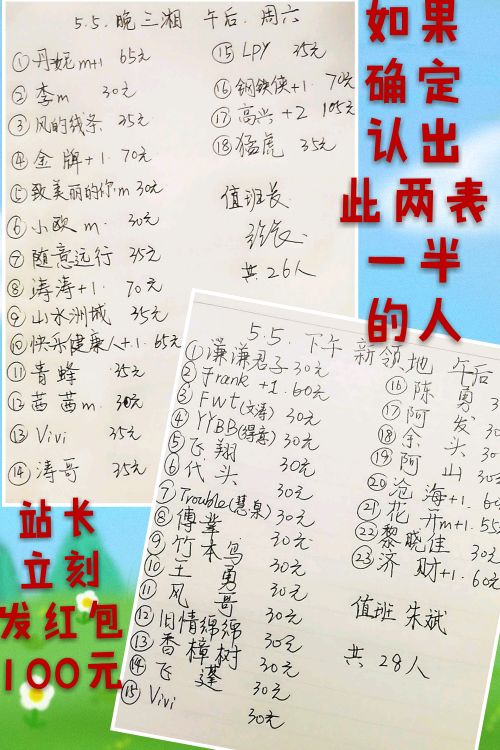 5.5.晚三湘 午后.周六
①丹妮m+1 65元
②李m 30元
③风的线条 35元
④金牌+1. 70元
⑤致美丽的你m 30元
⑥小欧m. 30元
⑦随意远行 35元
⑧涛涛+1. 70元
⑨山水洲城 35元
⑩快乐健康人+1. 65元
⑪青蜂 35元
⑫茜茜m. 30元
⑬Vivi 35元
⑭涛哥 35元
⑮LPY 35元
⑯钢铁侠+1. 70元
⑰高兴+2 105元
⑱猛虎 35元
值班长
共26人
如果
确定
认出
此两表
一半
的人
5.5.下午 新领地 午后
①濂濂君子 30元
②Frank +1 60元
③FWT(文涛) 30元
④YYBB(得意) 30元
⑤飞翔 30元
⑥代头 30元
⑦Trouble(慧泉) 30元
⑧傅掌 30元
⑨竹本鸟 30元
⑩王勇 30元
⑪风哥 30元
⑫旧情绵绵 30元
⑬香樟树 30元
⑭飞蓬 30元
⑮Vivi 30元
⑯陈勇 30
⑰阿发 30
⑱余头 30
⑲阿山 30
⑳沧海+1. 60
㉑花开m+1. 55
㉒黎晓佳 30
㉓济财+1. 60
值班 朱斌
共28人
站长
立刻
发红包
100元